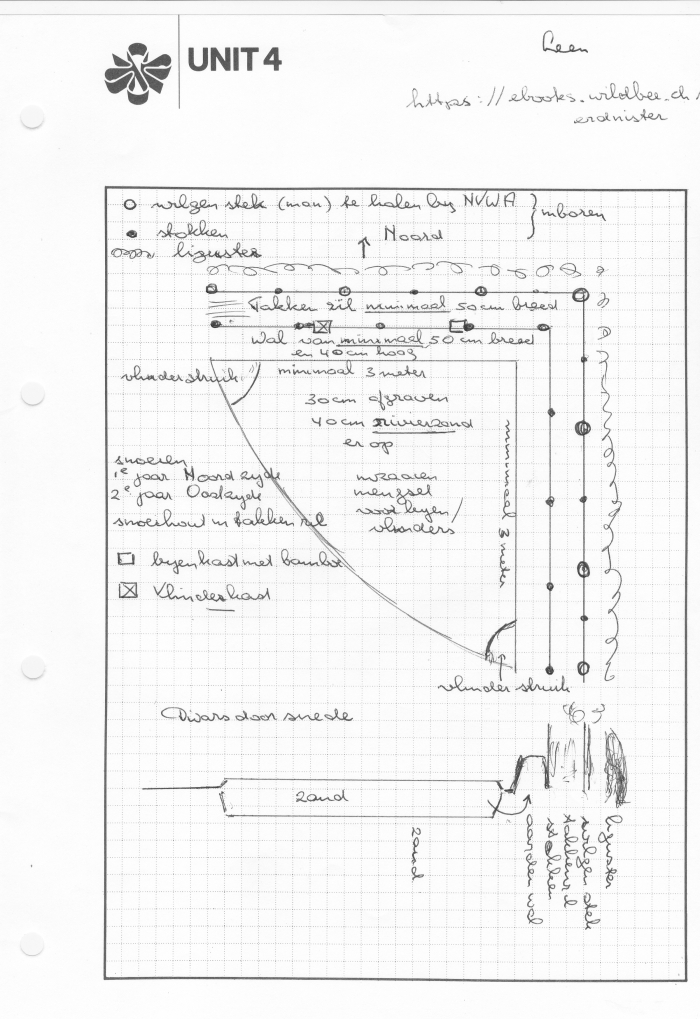 UNIT 4
Leen
https://ebooks.wildbee.ch/
erdnister
wilgen stek (man) te halen by NVWA
stokken
inboren
liguster
Noord
Takken ril minimaal 50 cm breed
Wal van minimaal 50 cm breed
en 40 cm hoog
vlinderstruik
minimaal 3 meter
30 cm afgraven
40 cm rivierzand
er op
minimaal 3 meter
snoeien
1e jaar Noord zyde
2e jaar Oostzyde
snoeihout in takken ril
inzaaien
mengsel
voor byen/
vlinders
byenkast met bamboe
Vlinderkast
vlinder struik
Dwars door snede
zand
zand
aarden wal
stokken
takkenril
wilgen stek
liguster